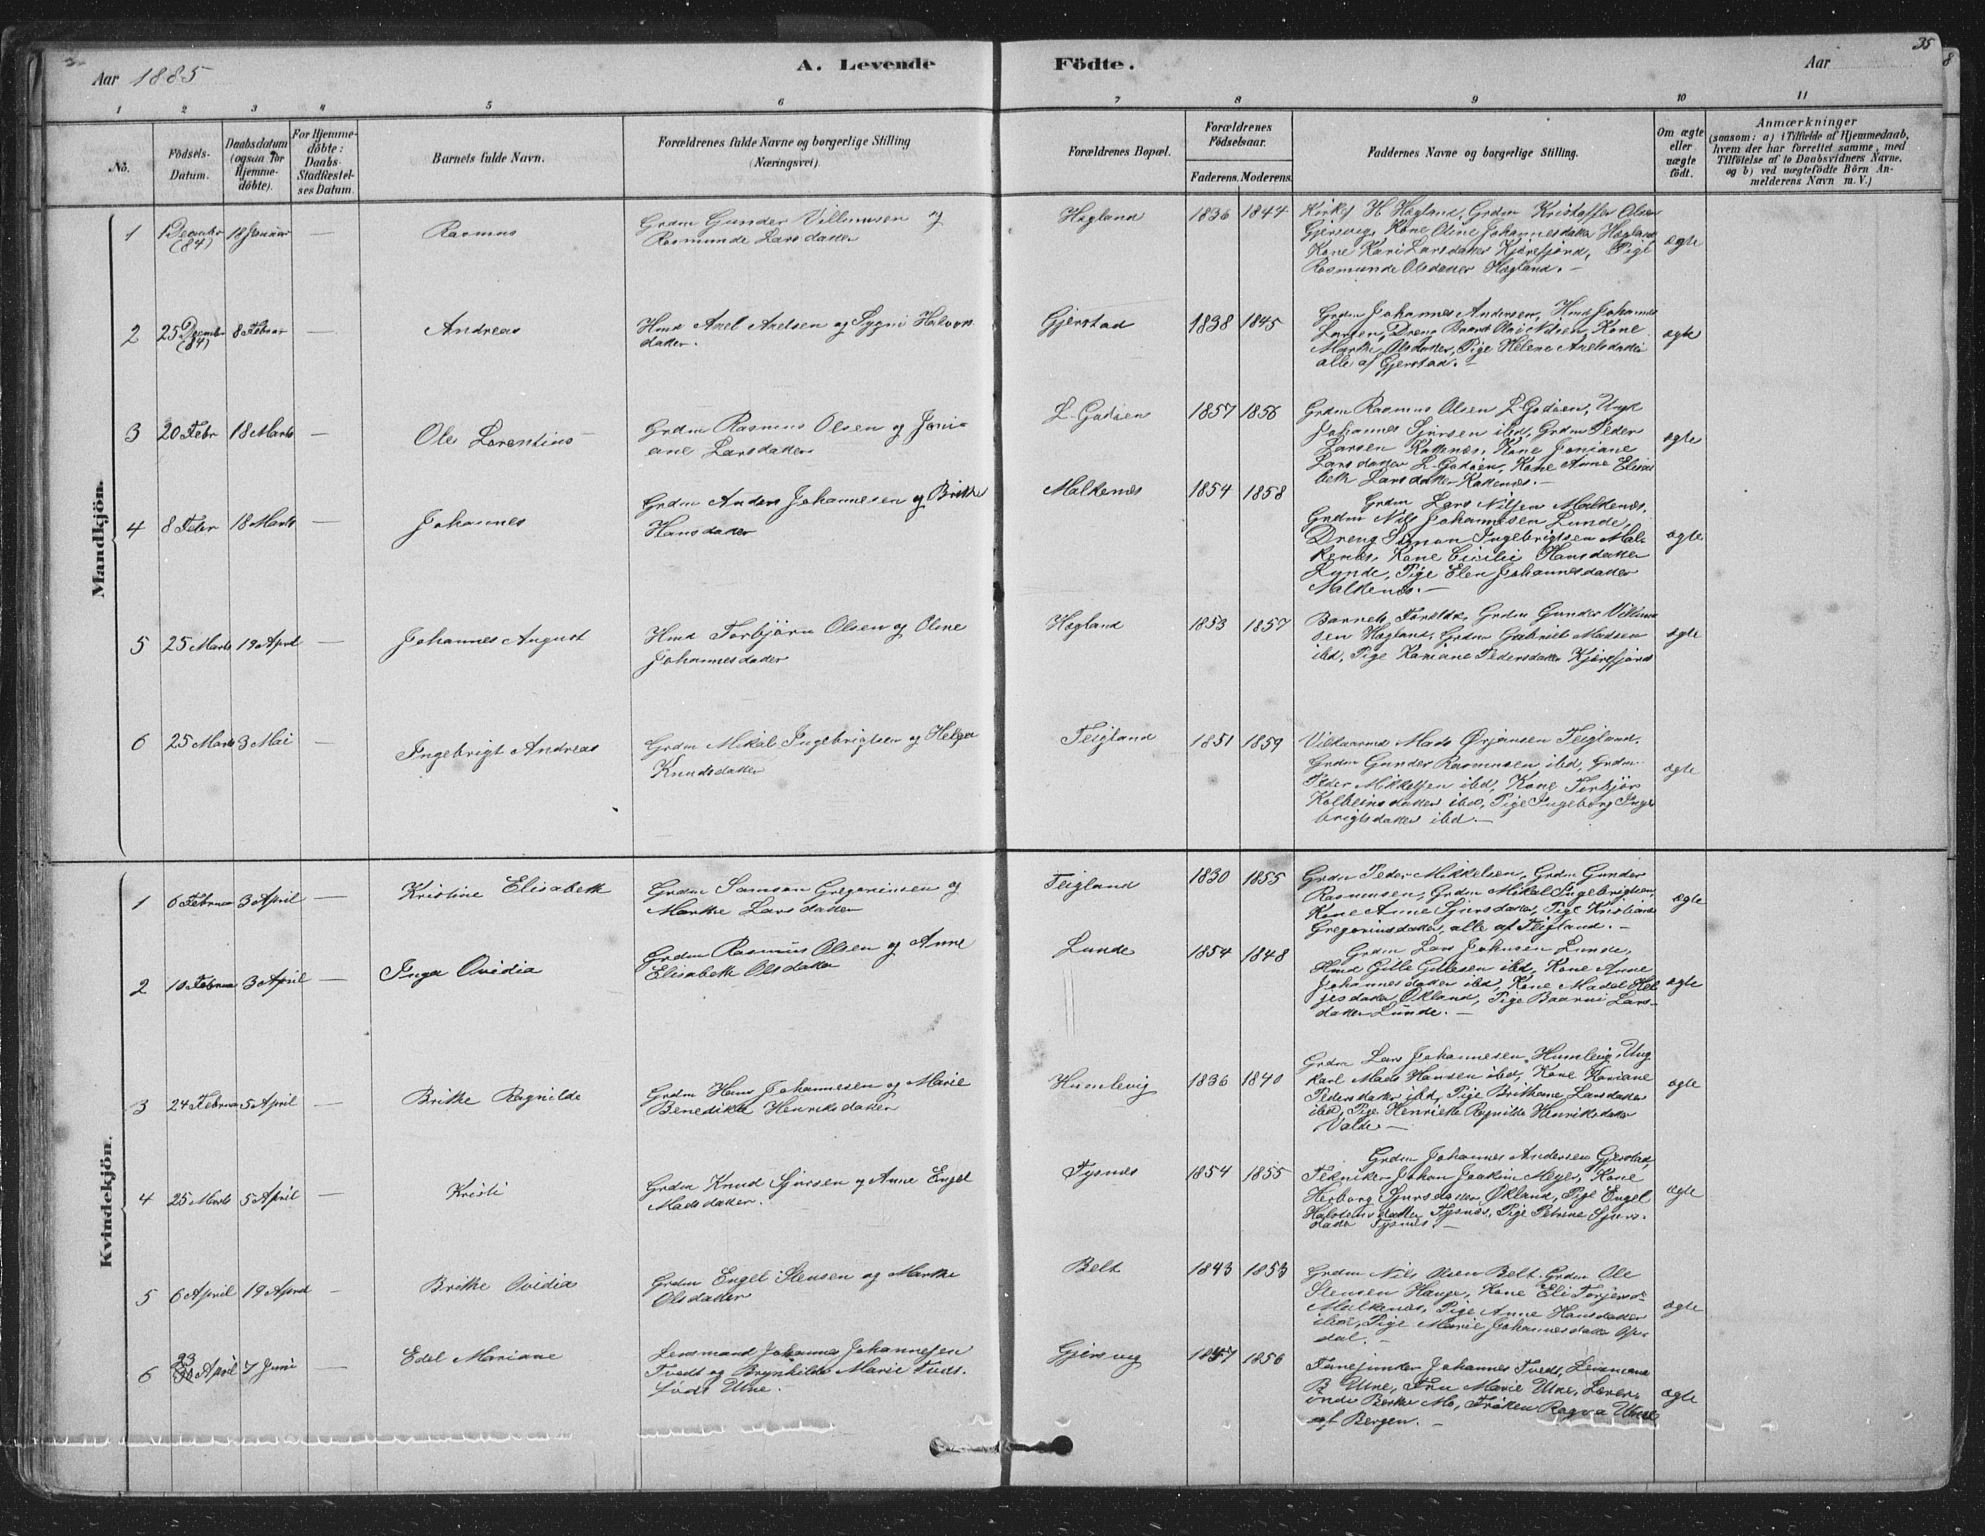 35
Aar 1885
A. Levende
Födte.
Aar
1 2 3 4 5 6 7 8 9 10 11
No.
Födsels-Datum.
Daabsdatum (ogsaa för Hjemme-döbte).
For Hjemme-döbte: Daabs-Stadfæstel-ses Datum.
Barnets fulde Navn.
Forældrenes fulde Navne og borgerlige Stilling (Næringsvei).
Forældrenes Bopæl.
Forældrenes Födselsaar.
Faderens. Moderens.
Faddernes Navne og borgerlige Stilling.
Om ægte eller uægte födt.
Anmærkninger
(saasom: a) i Tilfælde af Hjemmedaab,
hvem der har forrettet samme, med
Tilföielse af to Daabsvidners Navne,
og b) ved uægtefödte Börn An-
melderens Navn m. V.)
Mandkjön.
1 Decembr (84) 18 Januar — Rasmus
Grdm Gunder Villumsen og
Rasmunde Larsdatter
Hogland 1836 1844
Kirkes. H Hogland, Grdm Kristoffer Olsen
Gjersvig, Kone Oline Johannesdatter Hogland
Kone Kari Larsdatter Kjærefjord, Pige
Rasmunde Olsdatter Hogland. —
ægte
2 25 Decembr (84) 8 Februar — Andreas
Hmd Axel Axelsen og Sygni Halvors
datter.
Gjerstad 1838 1845
Grdm Johannes Andersen, Hmd Johannes
Larsen, Dreng Brandt Olai Nilsen, Kone
Marthe Olsdatter, Pige Helene Axelsdatter
alle af Gjerstad. —
ægte
3 20 Febr 18 Marts — Ole Lorentius
Grdm Rasmus Olsen og Joni-
ane Larsdatter
L-Godøen 1857 1856
Grdm Rasmus Olsen L-Godøen, Ungk
Johannes Sjursen ibd, Grdm Peder
Larsen Kattenes, Kone Joniane
Larsdatter L-Godøen, Kone Anne Elisa
beth Larsdatter Kattenes. —
ægte
4 8 Febr 18 Marts — Johannes
Grdm Anders Johannesen og Brithe
Hansdatter
Malkenes 1854 1858
Grdm Lars Nilsen Malkenes,
Grdm Nils Johannesen Lunde,
Dreng Simon Ingebrigtsen Mal-
kenes, Kone Cicilie Hansdatter
Lunde, Pige Elen Johannesdatter
Malkenes. —
ægte
5 25 Marts 19 April — Johannes August
Hmd Torbjørn Olsen og Oline
Johannesdatter
Hogland 1853 1857
Barnets Foreldre, Grdm Gunder Villum
sen Hogland, Grdm Gabriel Madsen
ibd, Pige Kaniane Pedersdatter Kjærefjord
ægte
6 25 Marts 3 Mai — Ingebrigt Andreas
Grdm Mikal Ingebrigtsen og Helga
Knudsdatter
Teigland 1851 1859
Vilkaarmd Mads Ørjansen Teigland,
Grdm Gunder Rasmussen ibd, Grdm
Peder Mikkelsen ibd, Kone Torbjør
Kolbeinsdatter ibd, Pige Ingeborg Inge
brigtsdatter ibd. —
ægte
Kvindekjön.
1 6 Februar 3 April — Kristine Elisabeth
Grdm Samson Gregoriusen og
Marthe Larsdatter
Teigland 1830 1855
Grdm Peder Mikkelsen, Grdm Gunder
Rasmusen, Grdm Mikal Ingebrigtsen,
Kone Anne Sjursdatter, Pige Kristiane
Gregoriusdatter, alle af Teigland. —
ægte
2 10 Februar 3 April — Inga Ovidia
Grdm Rasmus Olsen og Anne
Elisabeth Olsdatter
Lunde 1854 1848
Grdm Lars Johnsen Lunde,
Hmd Gitle Gitlesen ibd, Kone Anne
Johannesdatter ibd, Kone Madel Hel
jesdatter Økland, Pige Baarni Lars-
datter Lunde. —
ægte
3 24 Februar 5 April — Brithe Ragnilde
Grdm Hans Johannesen og Marie
Benedikte Henriksdatter
Humlevig 1836 1840
Grdm Lars Johannesen Humlevig, Ung
karl Mads Hansen ibd, Kone Kaniane
Pedersdatter ibd, Pige Brithane Larsdatter
ibd, Pige Henriette Ragnilde Henriksdatter
Valde —
ægte
4 25 Marts 5 April — Kristi
Grdm Knud Sjursen og Anne Engel
Madsdatter.
Tysnes 1854 1855
Grdm Johannes Andersen Gjerstad,
Tekniker Johan Joakim Meyer, Kone
Herborg Sjursdatter Økland, Pige Engel
datter Tysnes, Pige Petrine Sjurs-
datter Tysnes. —
ægte
5 6 April 19 April — Brithe Ovidia
Grdm Engel Stensen og Marthe
Olsdatter
Belt 1843 1853
Grdm Nils Olsen Belt, Grdm Ole
Stensen Hauge, Kone Eli Torjersd.
Malkenes, Pige Anne Hansdatter
ibd, Pige Marie Johannesdatter
dal. —
ægte
6 23 April 7 Juni — Edel Mariane
Lensmand Johannes Johannesen
Tvedt og Brynhilde Marie Tvedt
født Utne.
Gjersvig 1847 1856
Johannes Tvedt, Lensmand
B Utne, Fru Marie Utne, Lærer-
inde Berthe Mo, Frøken Ragna Utne
af Bergen. —
ægte